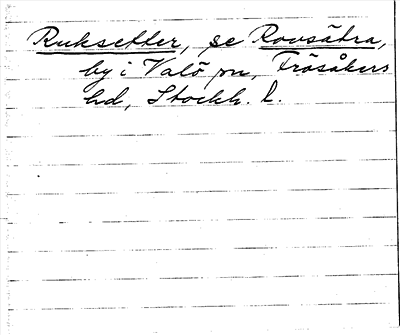 Ruksetter, se Rovsätra,
by i Valö sn, Frösåkers
hd, Stockh. l.